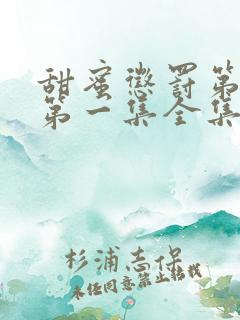 甜蜜懲罰第
第一集全集
杉浦志保
未经同意禁止转载